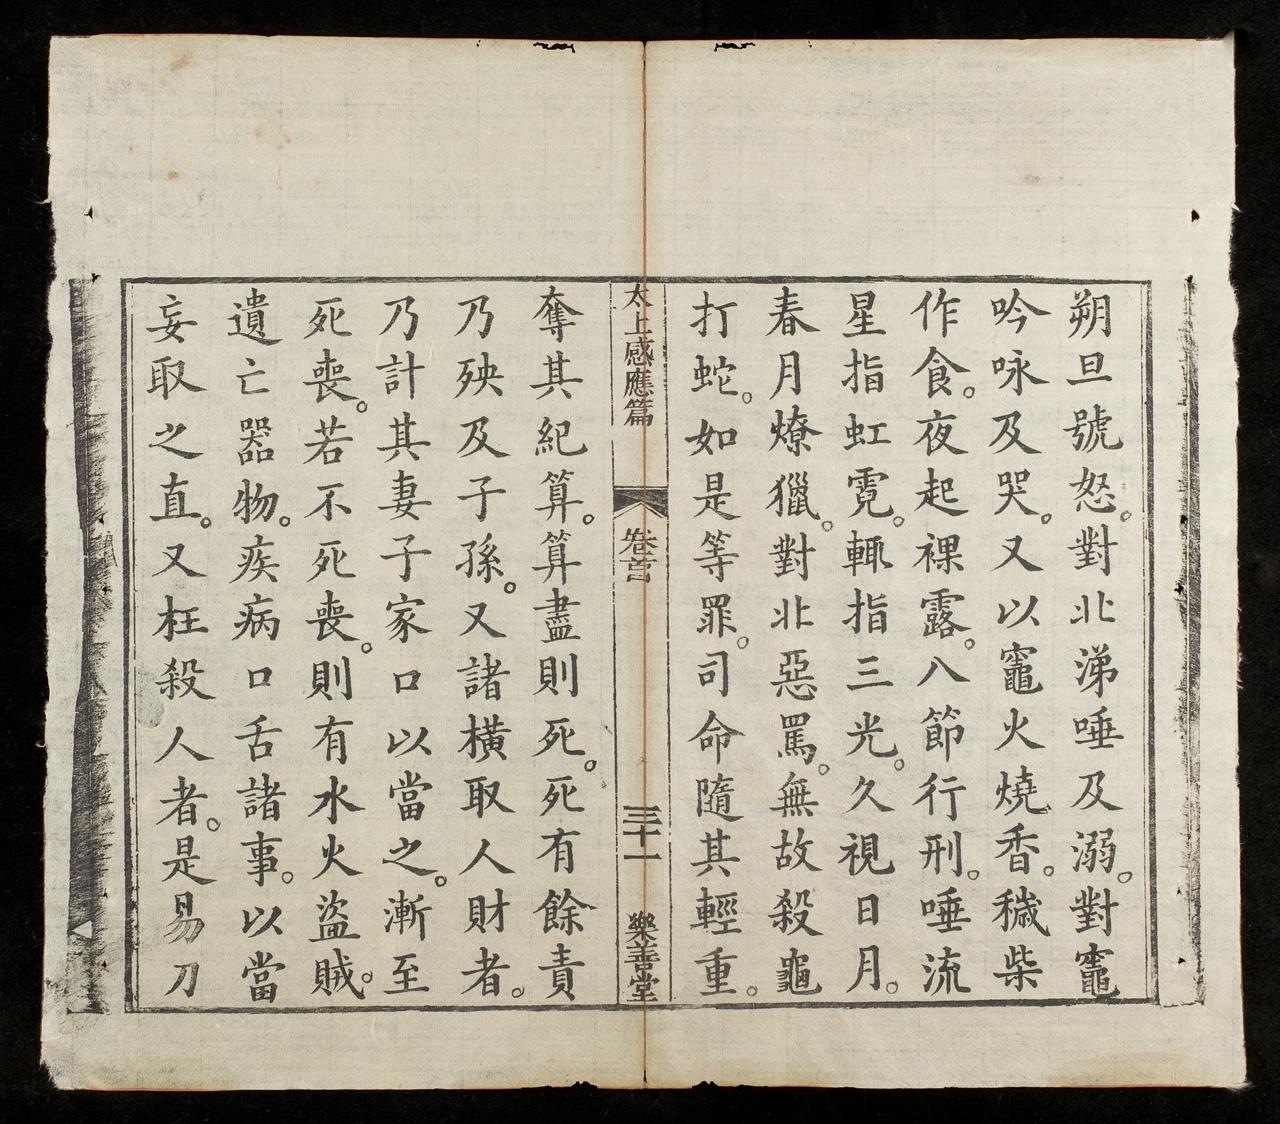 朔旦號怒。對北涕唾及溺。對竈
吟咏及哭。又以竈火燒香。穢柴
作食。夜起裸露。八節行刑。唾流
星指虹霓。輙指三光。久視日月。
春月燎獵。對北惡罵。無故殺龜
打蛇。如是等罪。司命隨其輕重。
太上感應篇 卷首 三十一 樂善堂
奪其紀算。算盡則死。死有餘責
乃殃及子孫。又諸橫取人財者。
乃計其妻子家口以當之。漸至
死喪。若不死喪。則有水火盜賊。
遺亡器物。疾病口舌諸事。以當
妄取之直。又枉殺人者。是易刀